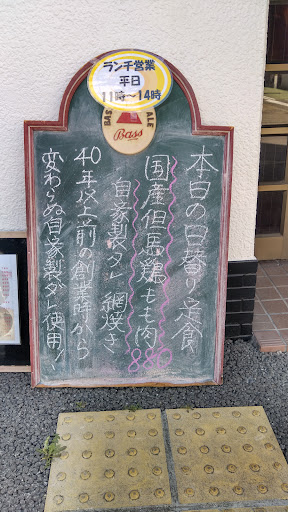 ランチ営業
平日
11時〜14時
Bass
本日の日替り定食
国産但馬鶏もも肉
自家製タレ 網焼き
880
40年以上前の創業時から
変わらぬ自家製ダレ使用!